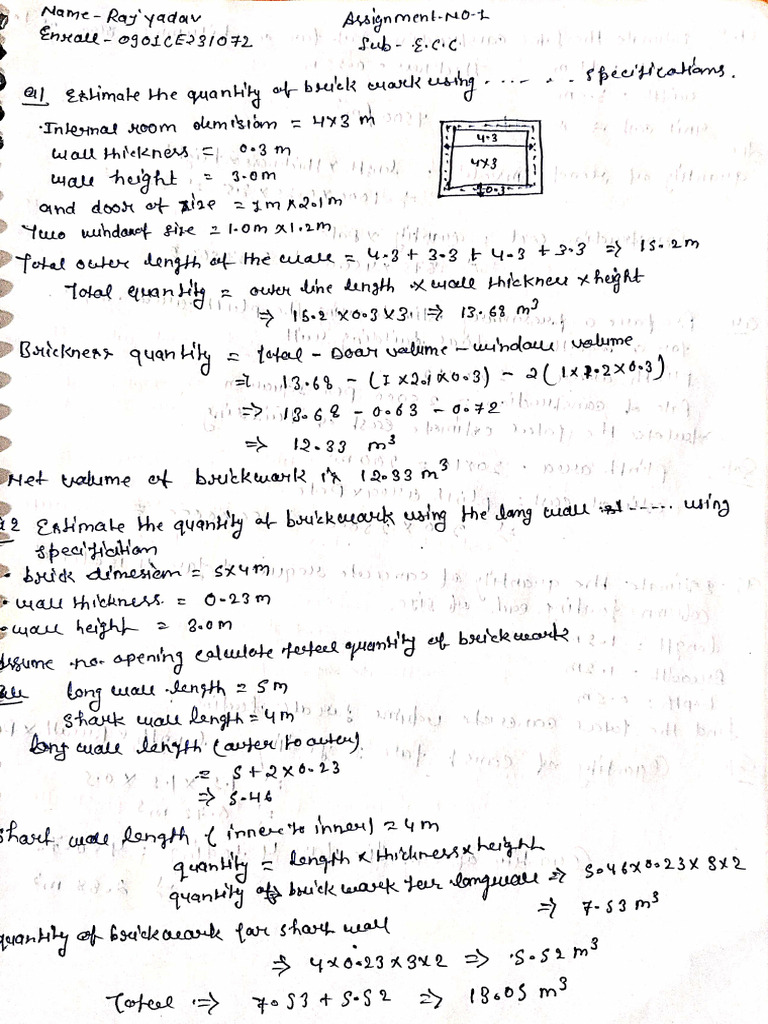 Name - Raj Yadav
Assignment-NO-1
Enroll - 0901CE231072
Sub - E.C.C
Q1 Estimate the quantity of brick work using ..... . specifications.
Internal room dimision = 4x3 m
wall thickness = 0.3 m
wall height = 3.0m
and door of size = 1m x 2.1m
Two window of size = 1.0m x 1.2m
4.3
4x3
0.3
Total outer length of the wall = 4.3 + 3.3 + 4.3 + 3.3 => 15.2m
Total quantity = outer line length x wall thickness x height
=> 15.2 x 0.3 x 3. => 13.68 m³
Brickness quantity = total - Door volume - window volume
=> 13.68 - (1 x 2.1 x 0.3) - 2(1 x 1.2 x 0.3)
=> 13.68 - 0.63 - 0.72
=> 12.33 m³
Net volume of brickwork is 12.33 m³
Q2 Estimate the quantity of brickwork using the long wall ..... using
specification
• brick dimesion = 5x4m
• wall thickness = 0.23m
• wall height = 3.0m
Assume no. opening calculate total quantity of brickwork
long wall length = 5m
short wall length = 4m
long wall length (outer to outer)
= 5 + 2 x 0.23
=> 5.46
short wall length (inner to inner) = 4m
quantity = length x thickness x height
quantity of brick work for longwall => 5.46 x 0.23 x 3 x 2
=> 7.53 m³
quantity of brickwork for short wall
=> 4 x 0.23 x 3 x 2 => 5.52 m³
Total => 7.53 + 5.52 => 13.05 m³